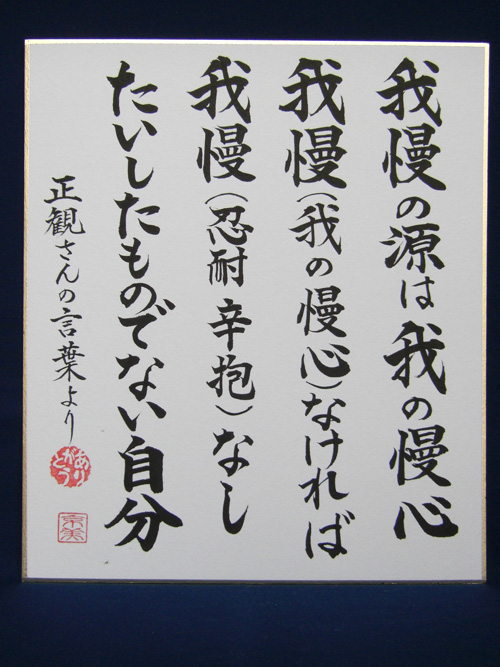 我慢の源は我の慢心
我慢(我の慢心)なければ
我慢(忍耐辛抱)なし
たいしたものでない自分
正観さんの言葉より
ありがとう